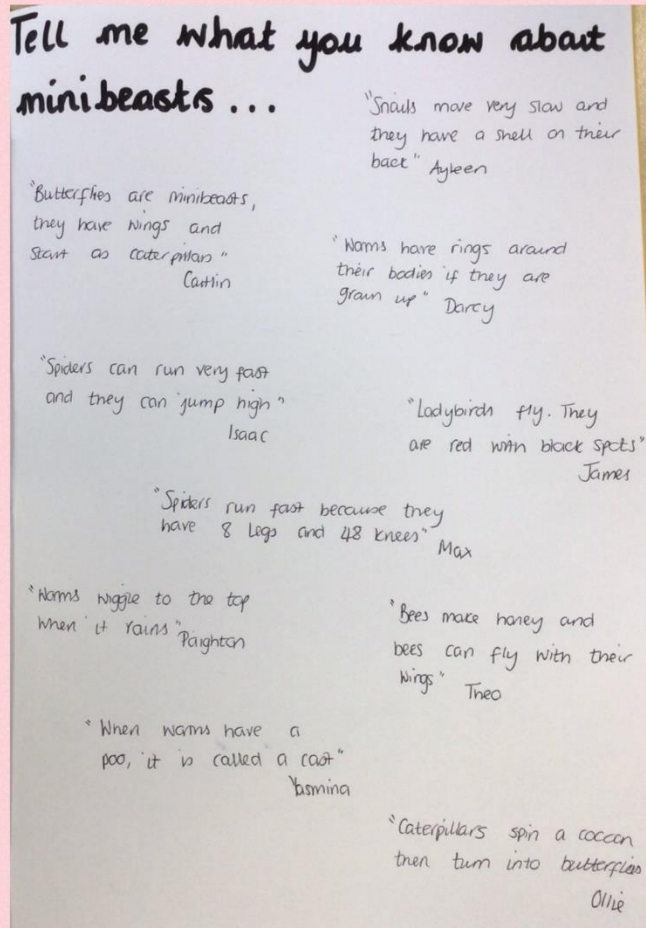 Tell me what you know about
minibeasts...
"Snails move very slow and
they have a shell on their
back" Ayleen
"Butterflies are minibeasts,
they have wings and
start as caterpillars"
Caitlin
"Worms have rings around
their bodies if they are
grown up" Darcy
"Spiders can run very fast
and they can jump high"
Isaac
"Ladybirds fly. They
are red with black spots"
James
"Spiders run fast because they
have 8 legs and 48 knees"
Max
"Worms wiggle to the top
when it rains" Paighton
"Bees make honey and
bees can fly with their
wings" Theo
"When worms have a
poo, it is called a cast"
Yasmina
"Caterpillars spin a cocoon
then turn into butterflies
Ollie